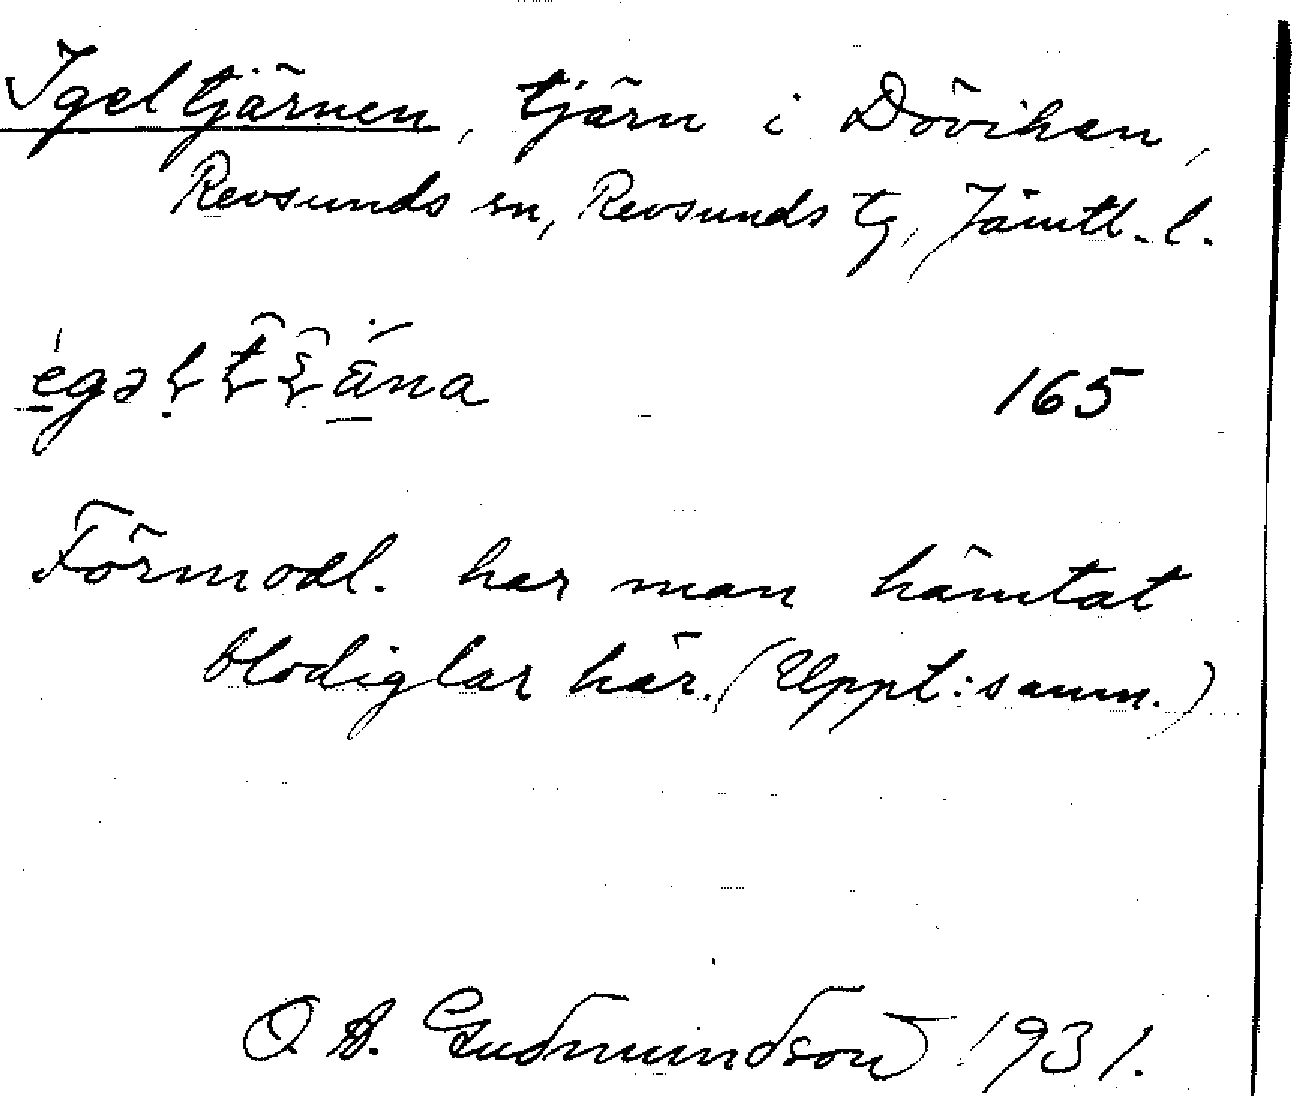 Igeltjärnen, tjärn i Döviken,
Revsunds sn, Revsunds tg, Jämtl. l.
165
Förmodl. har man hämtat
blodiglar här. (Uppt:s anm.)
O. A. Gudmundson 1931.